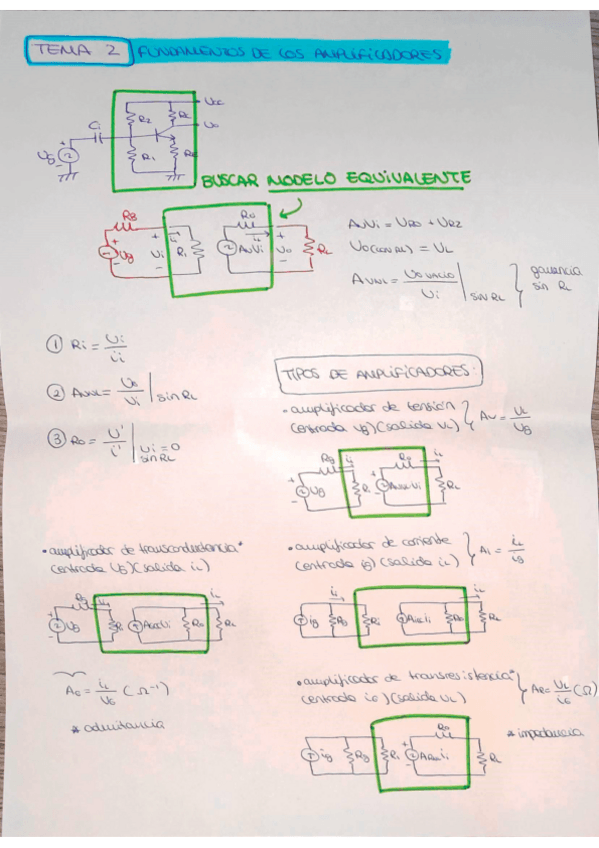 TEMA 2 FUNDAMENTOS DE LOS AMPLIFICADORES
Ucc
R2 RC
Uo
Ci
Ug
R1 RE
BUSCAR MODELO EQUIVALENTE
Rg Ro
Ug Ui Ri AuUi Uo RL
AuUi = URo + URL
Uo(con RL) = UL
AUNL = Uo vacío / Ui | SIN RL } ganancia sin RL
① Ri = Ui / ii
② AUNL = Uo / Ui | sin RL
③ Ro = U' / i' | Ui = 0 sin RL
TIPOS DE AMPLIFICADORES:
• amplificador de tensión
(entrada Ug)(salida UL) } AU = UL / Ug
Rg ii Ro iL
Ug Ri AUNLUi RL
• amplificador de transconductancia*
(entrada Ug)(salida iL)
Rg ii iL
Ug Ri Ui Ro RL
AG = iL / UG (Ω⁻¹)
* admitancia
• amplificador de corriente
(entrada ig)(salida iL) } Ai = iL / ig
ii iL
ig Rg Ri ii Ro RL
• amplificador de transresistencia*
(entrada iG)(salida UL) } AR = UL / iG (Ω)
* impedancia
Ro
ig Rg Ri ii RL